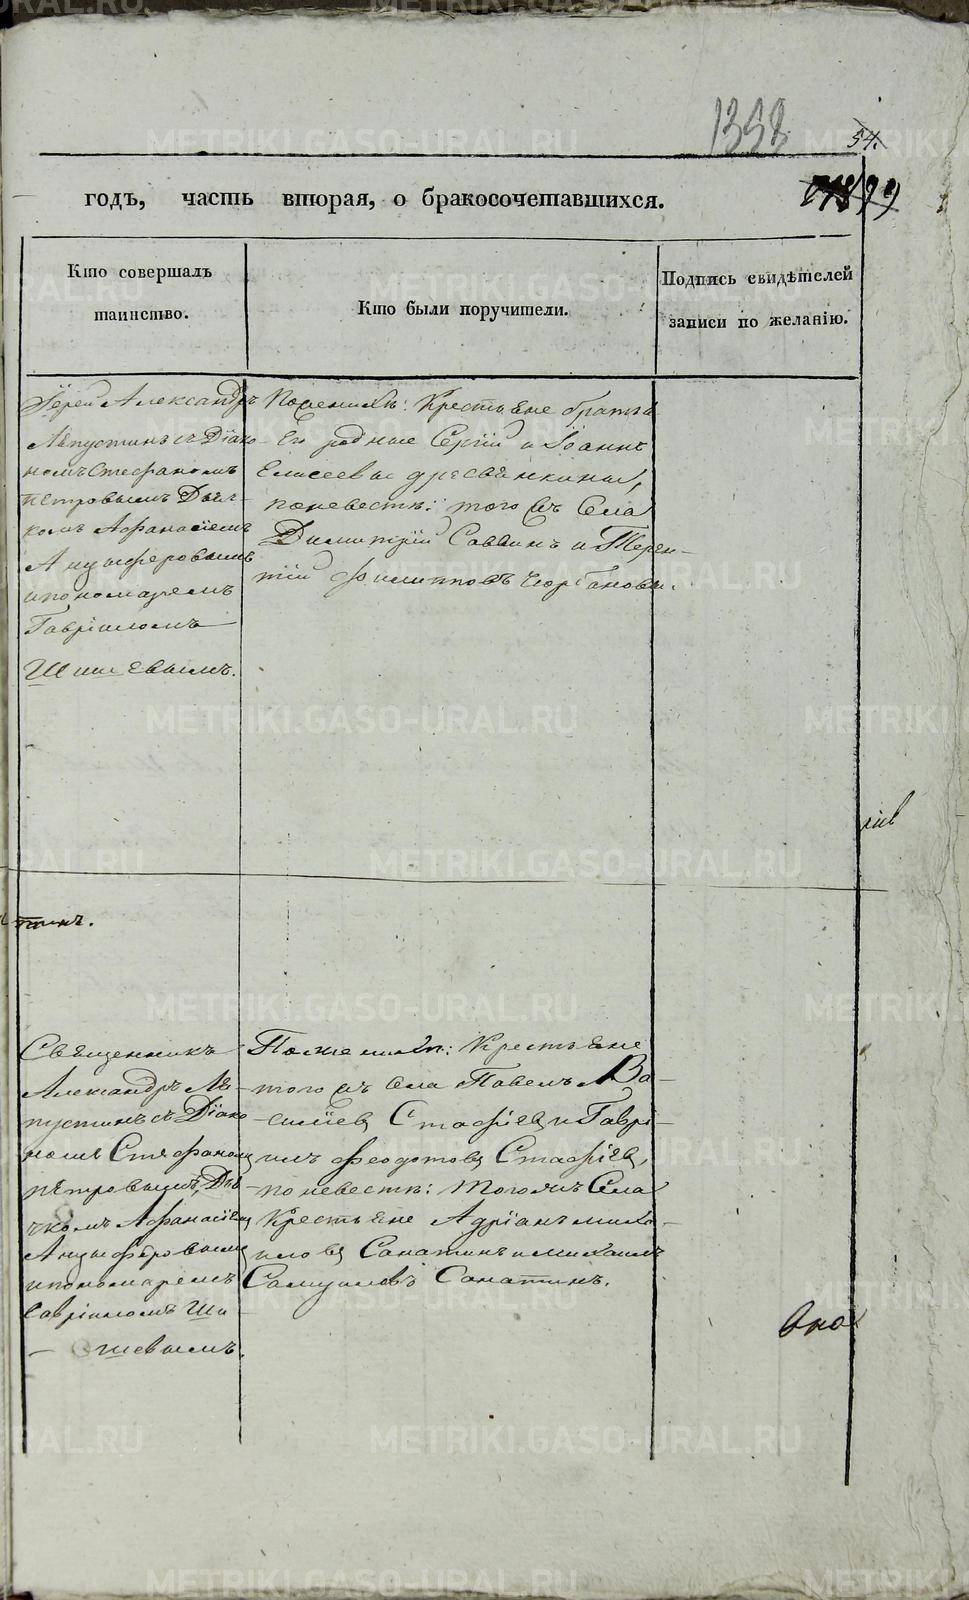 1338
54.
годъ, часть вторая, о бракосочетавшихся.
Кто совершалъ
таинство.
Кто были поручители.
Подпись свидѣтелей
записи по желанію.
Іерей Александръ
Лепустинъ съ Діако-
номъ Стефаномъ
Петровымъ Дьяч-
комъ Афанасіемъ
Анцыферовымъ
и пономаремъ
Гавріиломъ
Шишевымъ.
По женихѣ: Крестьяне братья
Его родные Сергій и Іоаннъ
Елисеевы
по невестѣ: того жъ Села
Димитрій Саввинъ и Терен-
тій Филипповъ
тинъ.
Священникъ
Александръ Ле-
пустинъ съ Діако-
номъ Стефаномъ
Петровымъ, Дья-
чкомъ Афанасіемъ
Анцыферовымъ
и пономаремъ
Гавріиломъ Ши-
шевымъ.
По женихѣ: Крестьяне
того жъ Села Павелъ Ва-
силіевъ Стафіевъ и Гаврі-
илъ Феодотовъ Стафіевъ,
по невестѣ: того жъ Села
Крестьяне Адріанъ Михаи-
ловъ Санатинъ и Михаилъ
Самуиловъ Санатинъ.
METRIKI.GASO-URAL.RU